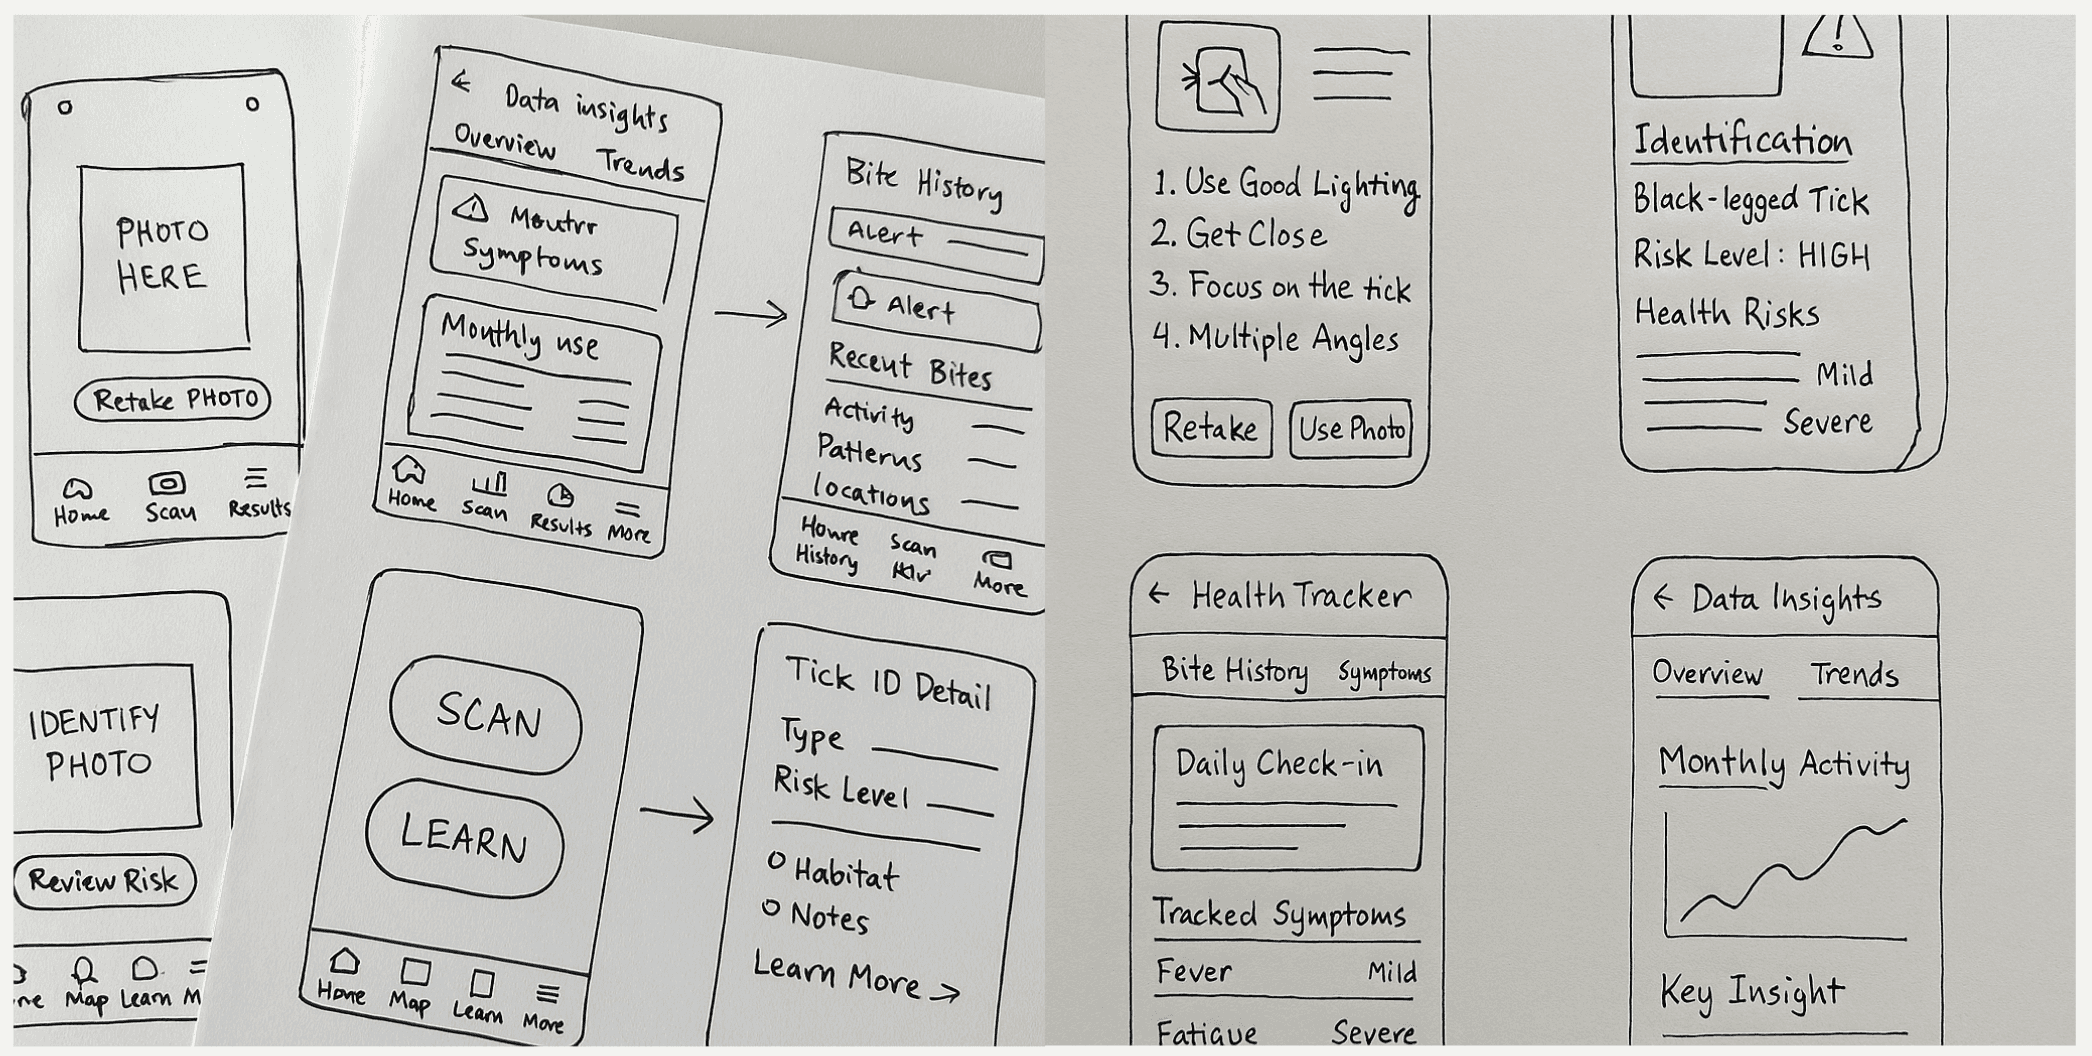 PHOTO
HERE
Retake PHOTO
Home
Scan
Results
IDENTIFY
PHOTO
Review Risk
Map
Learn
Data insights
Overview
Trends
Symptoms
Monthly use
Home
Scan
Results
More
Bite History
Alert
Alert
Recent Bites
Activity
Patterns
locations
Scan
History
More
SCAN
LEARN
Home
Map
Learn
More
Tick ID Detail
Type
Risk Level
Habitat
Notes
Learn More →
1. Use Good Lighting
2. Get Close
3. Focus on the tick
4. Multiple Angles
Retake
Use Photo
Identification
Black-legged Tick
Risk Level: HIGH
Health Risks
Mild
Severe
← Health Tracker
Bite History
Symptoms
Daily Check-in
Tracked Symptoms
Fever
Mild
Fatigue
Severe
← Data Insights
Overview
Trends
Monthly Activity
Key Insight